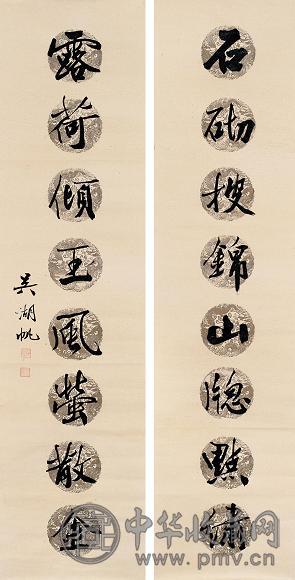 石砌錦山牕點繡
露荷傾玉風螢散金
吳湖帆
中华收藏网
www.pmv.cn